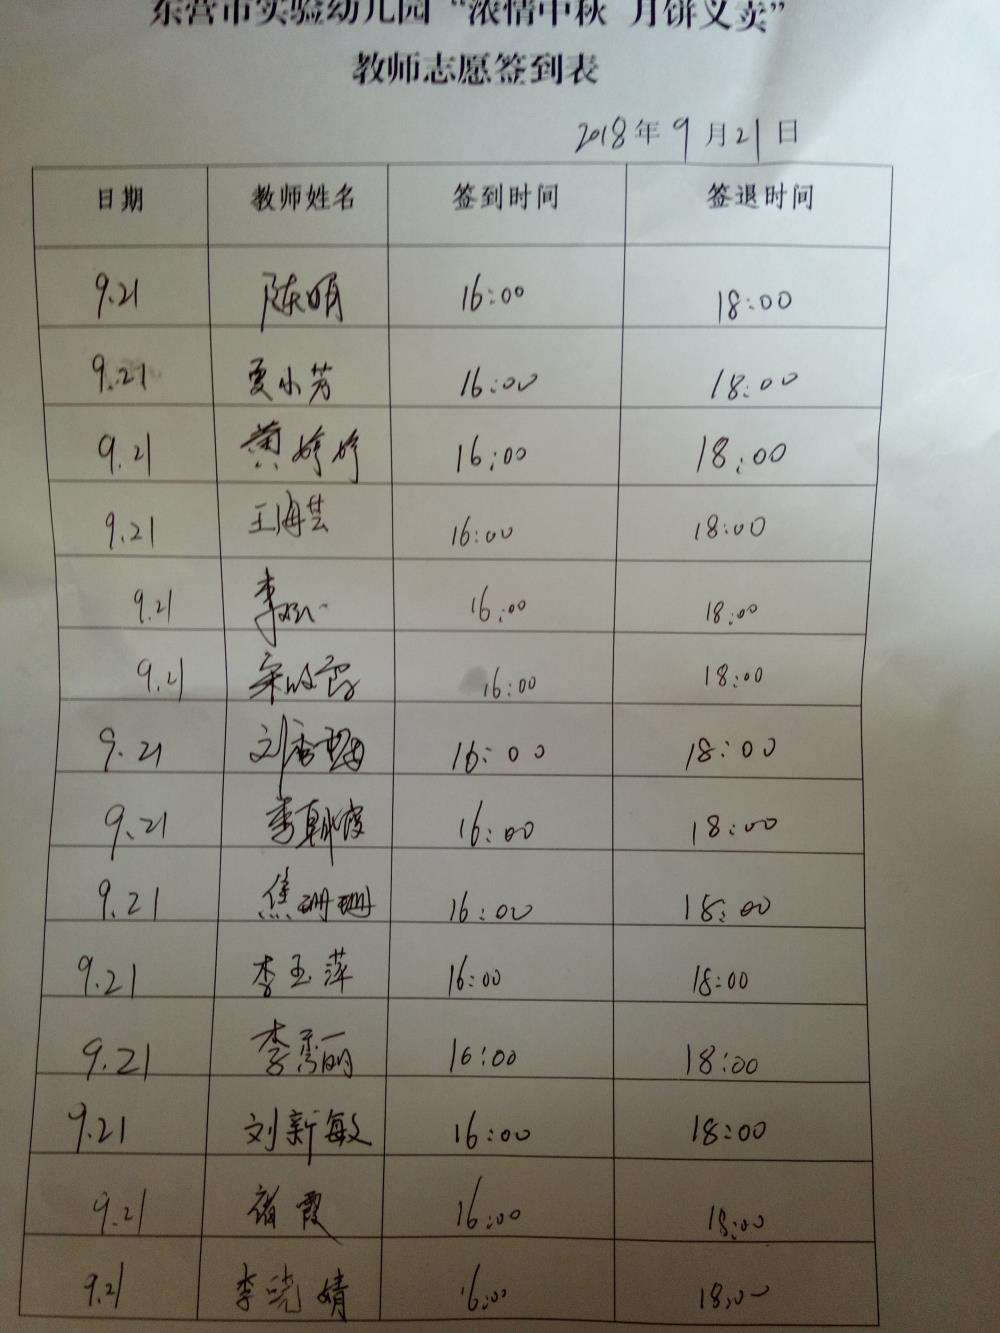 东营市实验幼儿园“浓情中秋 月饼义卖”
教师志愿签到表
2018年9月21日
日期 教师姓名 签到时间 签退时间
9.21 陈明 16:00 18:00
9.21 夏小芳 16:00 18:00
9.21 黄婷婷 16:00 18:00
9.21 王海芸 16:00 18:00
9.21 李 16:00 18:00
9.21 宋 霞 16:00 18:00
9.21 刘香梅 16:00 18:00
9.21 李朝霞 16:00 18:00
9.21 焦珊珊 16:00 18:00
9.21 李玉萍 16:00 18:00
9.21 李秀丽 16:00 18:00
9.21 刘新敏 16:00 18:00
9.21 霞 16:00 18:00
9.21 李晓婧 16:00 18:00